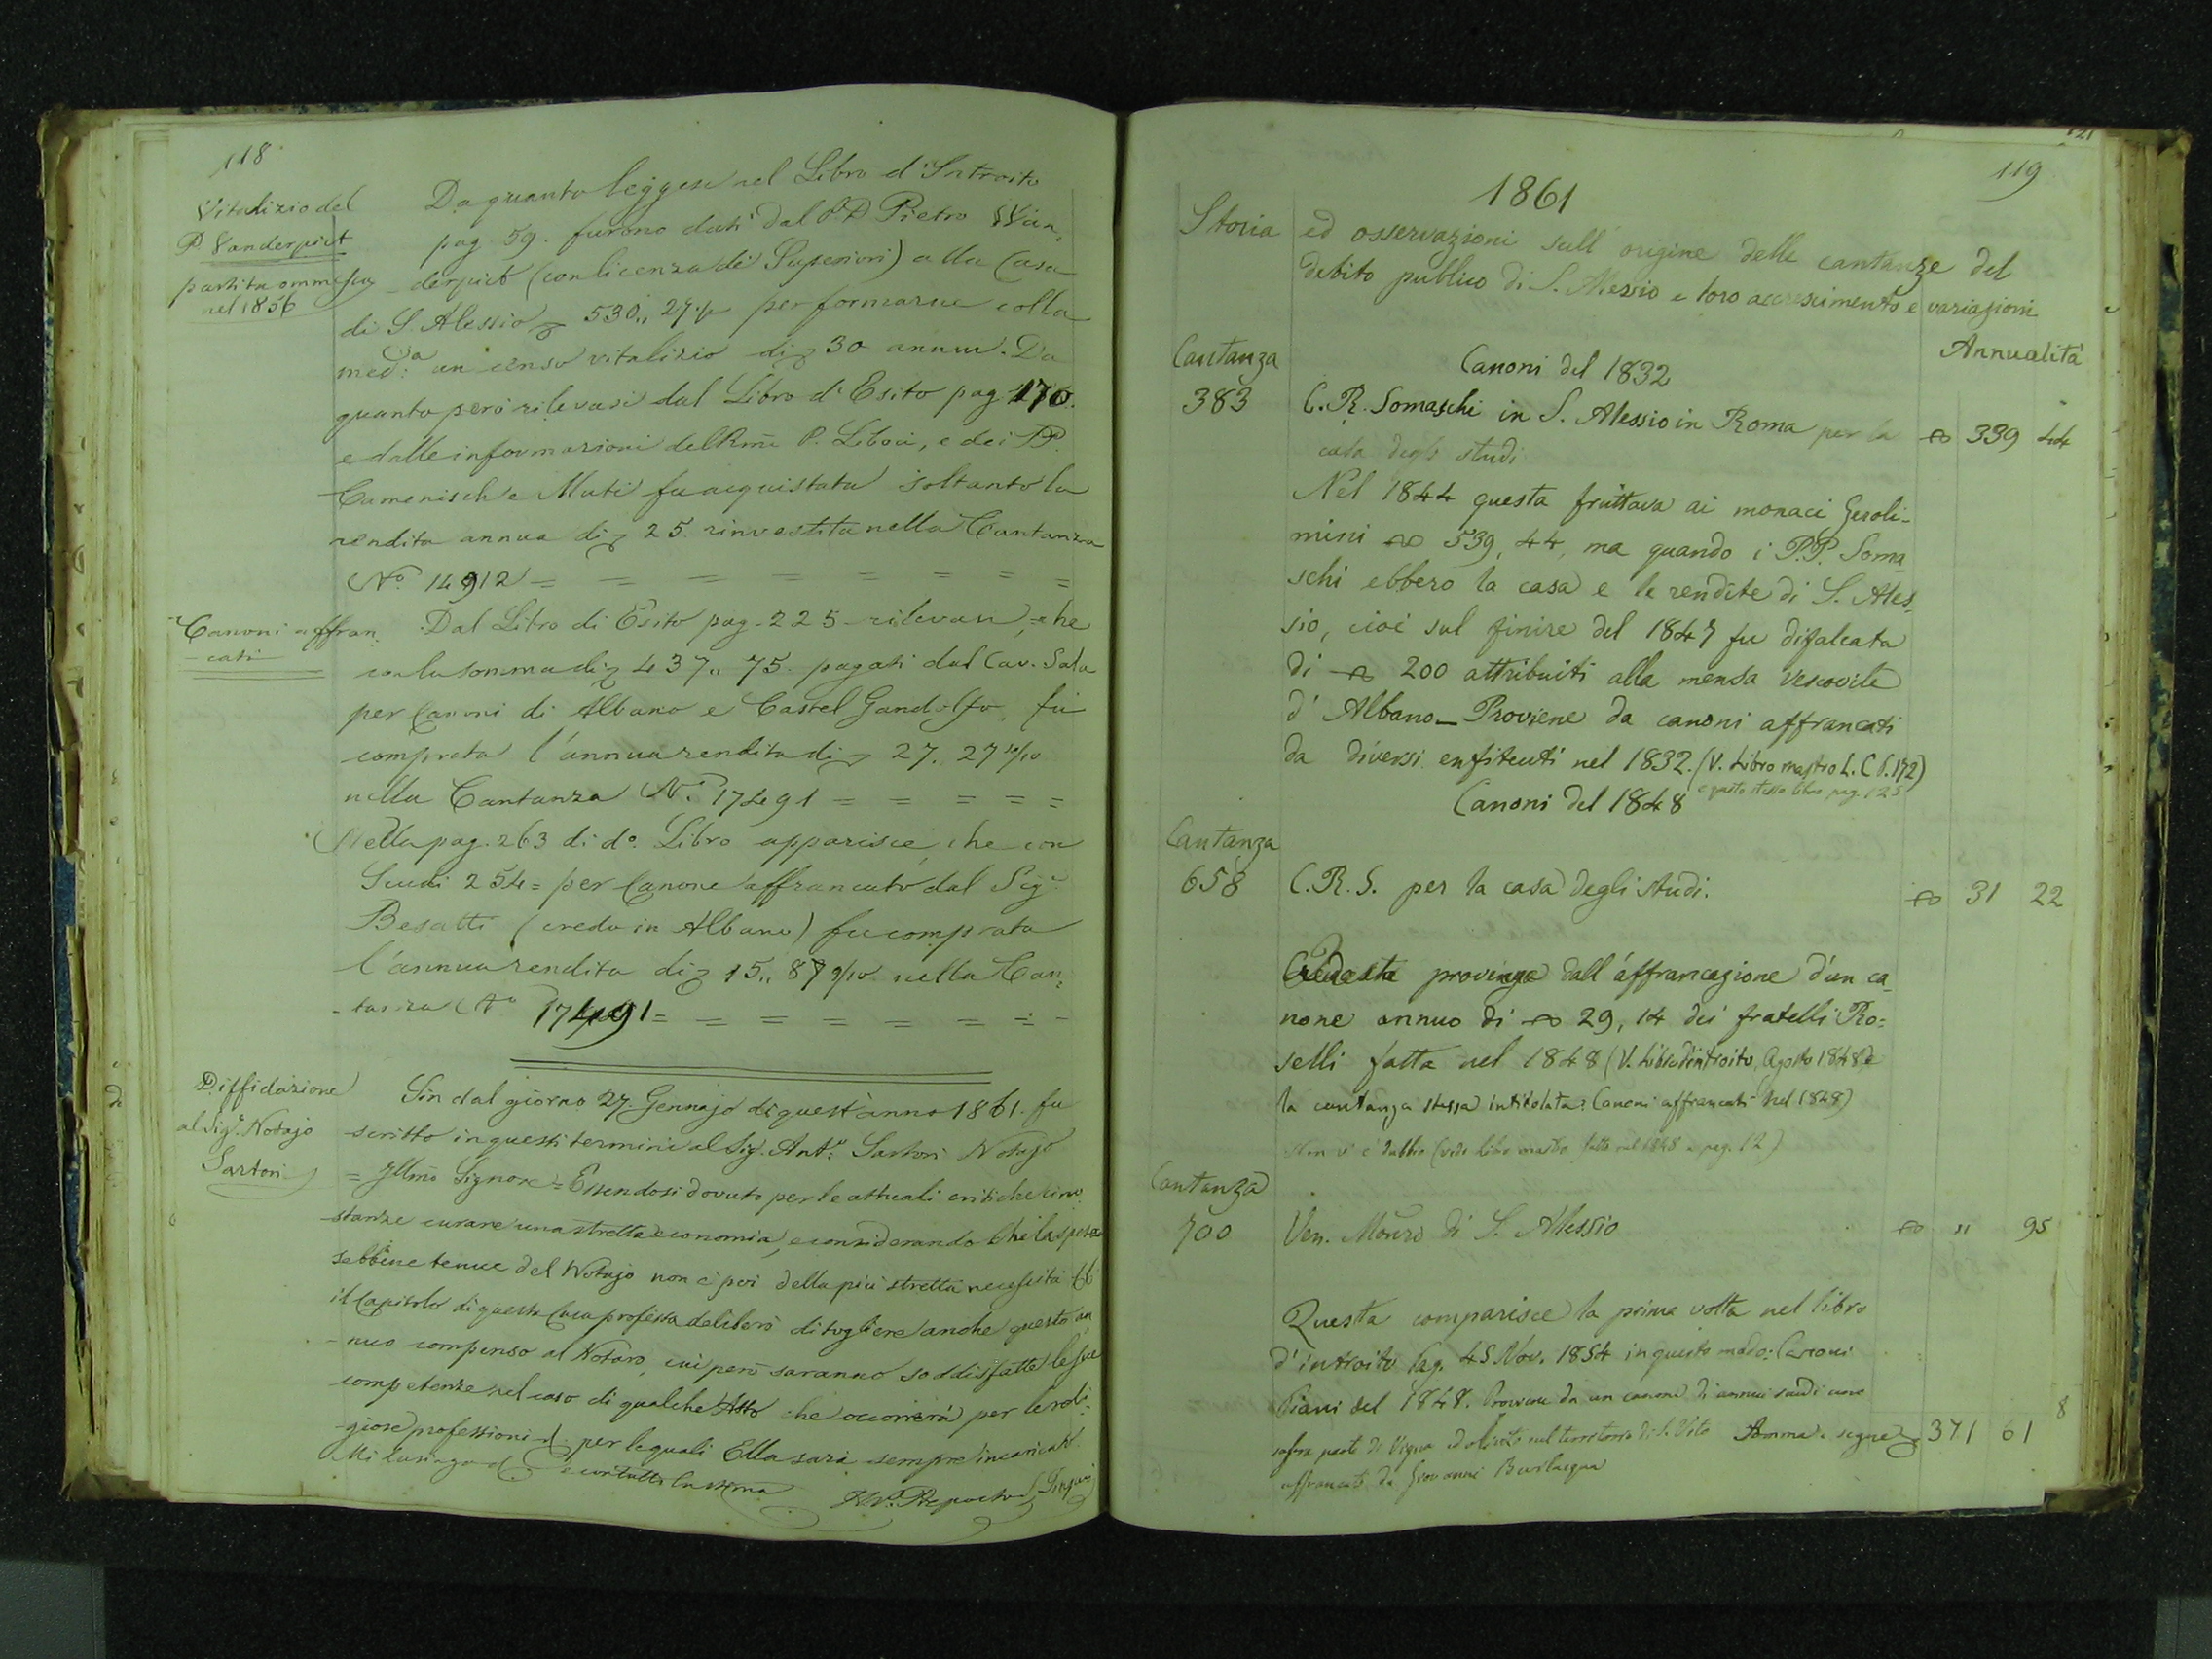 118
Vitalizio del
P. Vanderpict
partita ommessa
nel 1856
Da quanto leggesi nel Libro d'Introito
pag. 59. furono dati dal P. D. Pietro Wan-
derpict (con licenza dei Superiori) alla Casa
di S. Alessio 530,, 27 per formarne colla
med:a un censo vitalizio di 30 annui. Da
quanto però rilevasi dal Libro d'Esito pag. 170.
e dalle informazioni del Rmo P. Libois, e dei PP.
Camenisch e Muti fu acquistata soltanto la
rendita annua di 25. rinvestita nella Cantanza
N.o 14912 = = = = = = = =
Canoni affran
-cati
Dal Libro di Esito pag. 225 rilevasi, che
con la somma di 437,, 75. pagati dal Cav. Sala
per Canoni di Albano e Castel Gandolfo, fu
comprata l'annua rendita di 27. 27
nella Cantanza N.o 17491 = = = = =
Nella pag. 263 di do. Libro apparisce, che con
Scudi 254 = per Canone affrancato dal Sigr
Besatti (credo in Albano) fu comprata
l'annua rendita di 15,, 87 9/10 nella Can-
-tanza No 17491 = = = = = = =
Diffidazione
al Sigr. Notajo
Sartori
Sin dal giorno 27. Gennajo di quest'anno 1861. fu
scritto in questi termini al Sig. Ant:o Sartori Notajo
= Illmo Signore = Essendosi dovuto per le attuali critiche circo
stanze curare una stretta economia, e considerando che la spesa
sebbene tenue del Notajo non è poi della più stretta necessità
il Capitolo di questa Casa professa deliberò di togliere anche questo an
-nuo compenso al Notaro, cui però saranno soddisfatte le sue
competenze nel caso di qualche Atto che occorrerà per le reli-
-giose professioni per le quali Ella sarà sempre incaricato.
Mi lusingo e con tutta la stima
119
1861
Storia ed osservazioni sull'origine delle cantanze del
debito publico di S. Alessio e loro accrescimento e variazioni
Annualità
Cantanza
Canoni del 1832
383 C. R. Somaschi in S. Alessio in Roma per la 339 44
casa degli studi
Nel 1844 questa fruttava ai monaci Geroli-
mini 539, 44, ma quando i P.P. Soma-
schi ebbero la casa e le rendite di S. Ales-
sio, cioè sul finire del 1847 fu difalcata
di 200 attribuiti alla mensa vescovile
d'Albano — Proviene da canoni affrancati
da diversi enfiteuti nel 1832. (V. Libro mastro L. C f. 172)
e questo stesso libro pag. 125
Canoni del 1848
Cantanza
658 C. R. S. per la casa degli studi. 31 22
provenga dall'affrancazione d'un ca-
none annuo di 29, 14 dei fratelli Ro-
selli fatta nel 1848 (V. Libro d'introito, Agosto 1848 e
la cantanza stessa intitolata: Canoni affrancati nel 1848)
Non v'è dubbio (vedi libro mastro fatto nel 1848 a pag. 12)
Cantanza
700 Ven. Monro di S. Alessio " 95
Questa comparisce la prima volta nel libro
d'introito Pag. 45 Nov. 1854 in questo modo: Canoni
Piani del 1848. Proviene da un canone di annui scudi
sopra parte di Vigna ed oliveto nel territorio di S. Vito Somma e segue 371 61
8
affrancato da Giovanni Burlacqua